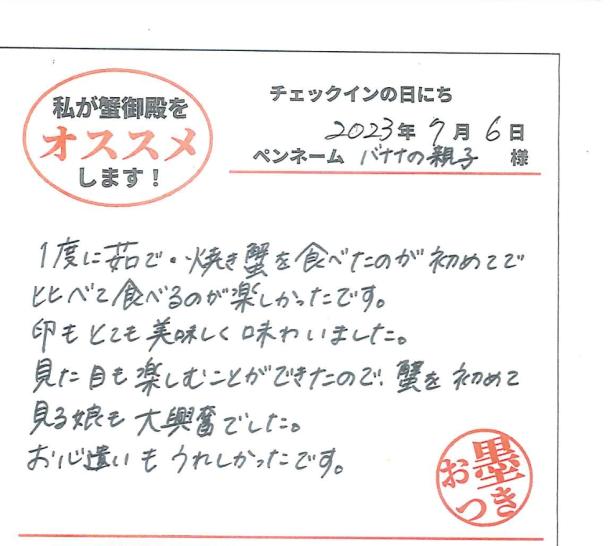 私が蟹御殿を
オススメ
します！
チェックインの日にち
2023年 7月 6日
ペンネーム バナナの親子 様
1度に茹で・焼き蟹を食べたのが初めてで
比べて食べるのが楽しかったです。
卵もとても美味しく味わいました。
見た目も楽しむことができたので、蟹を初めて
見る娘も大興奮でした。
お心遣いもうれしかったです。
お墨つき